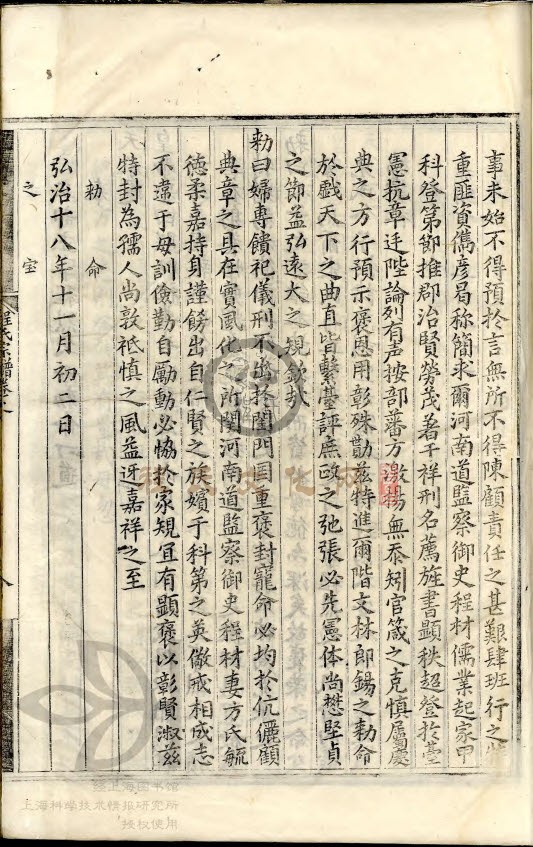 事未始不得預於言無所不得陳顧責任之甚艱肆班行之
重匪資儁彦曷称簡求爾河南道監察御史程材儒業起家甲
科登第節推郡治賢勞茂著于祥刑名薦旌書顯秩超登於臺
憲抗章廷陛論列有声按部蕃方激揚無忝矧官箴之克慎屬慶
典之方行預示褒恩用彰殊勩茲特進爾階文林郎錫之勅命
於戲天下之曲直皆繫臺評庶政之弛張必先憲体尚懋堅貞
之節益弘遠大之規欽哉
勅曰婦専饋祀儀刑不出於閨門国重褒封寵命必均於伉儷顧
典章之具在實風化之所関河南道監察御史程材妻方氏毓
德柔嘉持身謹飭出自仁賢之族嬪于科第之英儆戒相成志
不違于母訓儉勤自勵動必恊於家規宜有顕褒以彰賢淑茲
特封為孺人尚敦祗慎之風益迓嘉祥之至
勅命
弘治十八年十一月初二日
之宝
程氏宗譜卷之
八
经上海图书馆
上海科学技术情报研究所
授权使用